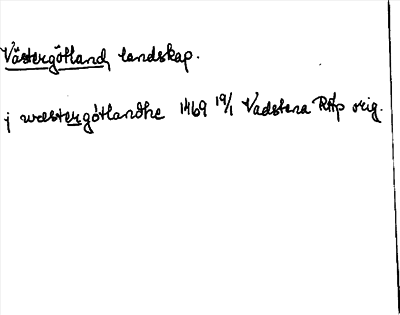 Västergötland, landskap.
j wæstergötlandhe 1469 19/1 Vadstena RAp orig.